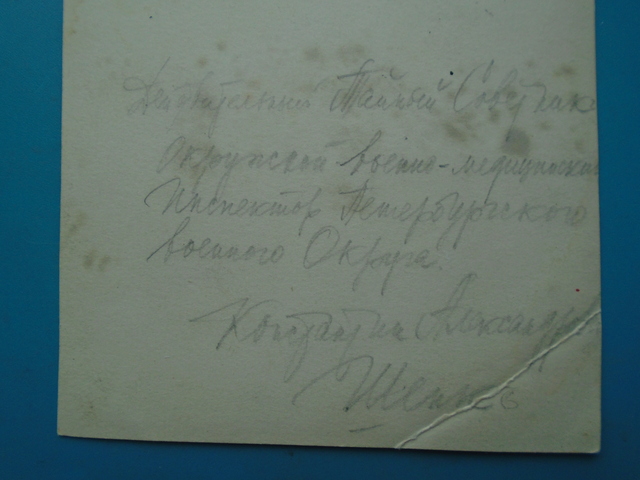 Действительный Тайный Советник
Окружной военно-медицинский
Инспектор Петербургского
военного Округа.
Константин Александров